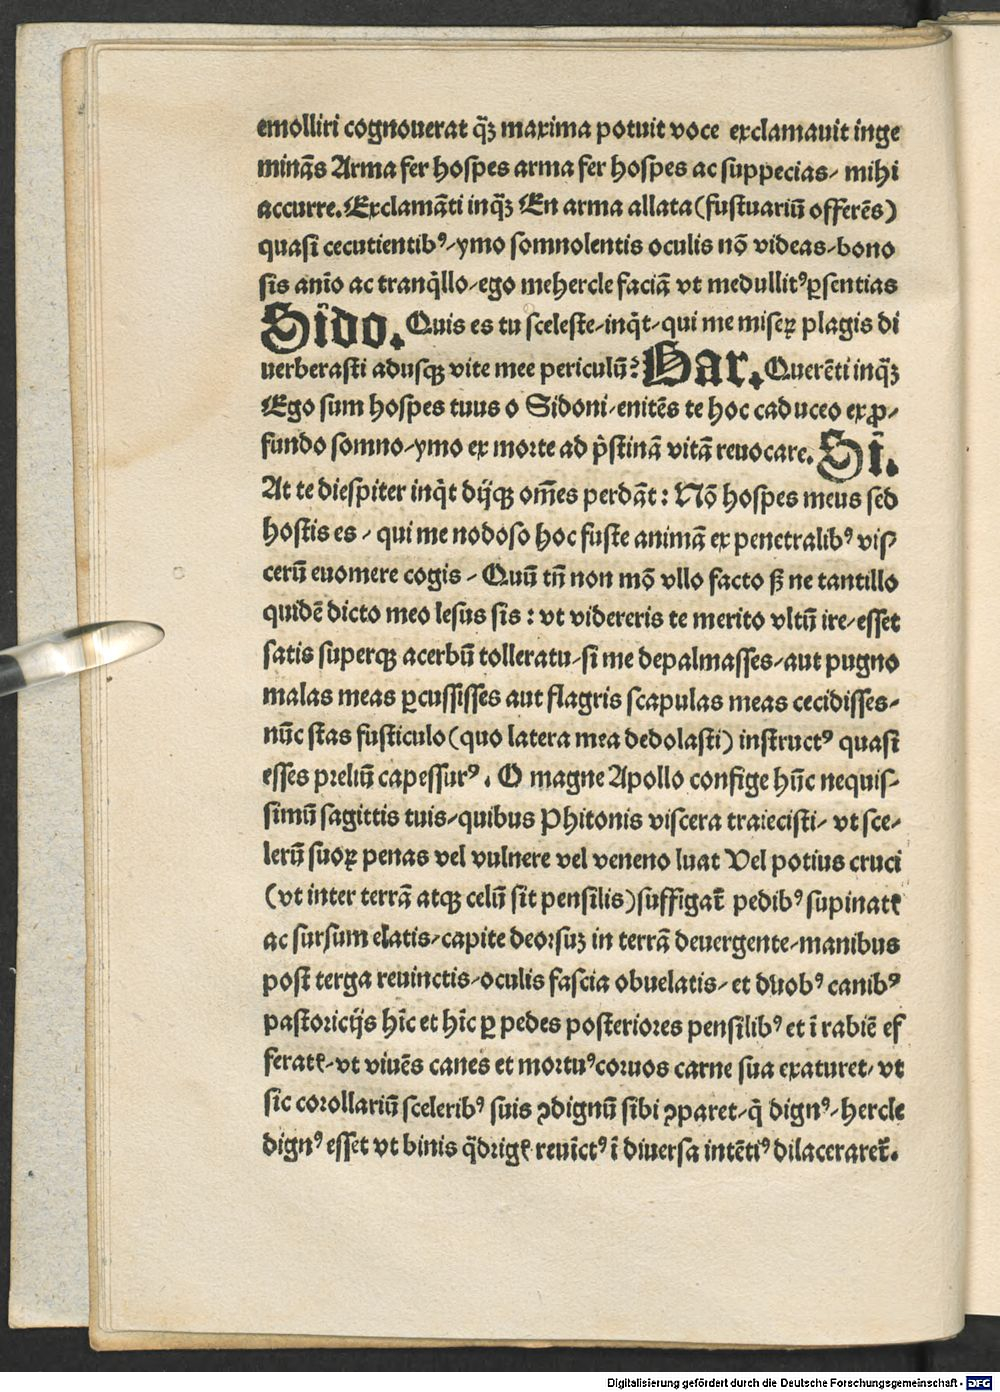 emolliri cognouerat q̃ʒ maxima potuit voce exclamauit inge
minãs Arma fer hospes arma fer hospes ac suppecias⸗ mihi
accurre. Exclamãti inq̃ʒ En arma allata (fustuariũ offerẽs)
quasi cecutientibꝰ⸗ymo somnolentis oculis nõ videas⸗bono
sis anĩo ac tranq̃llo⸗ego mehercle faciã vt medullitꝰ ꝑsentias
Sido. Quis es tu sceleste⸗inq̃t⸗qui me miseꝝ plagis di
uerberasti adusqʒ vite mee periculũ? Har. Querẽti inq̃ʒ
Ego sum hospes tuus o Sidoni⸗enitẽs te hoc caduceo ex ꝓ⸗
fundo somno⸗ymo ex morte ad p̃stinã vitã reuocare. Sĩ.
At te diespiter inq̃t dijqʒ om̃es perdãt: Nõ hospes meus sed
hostis es⸗ qui me nodoso hoc fuste animã ex penetralibꝰ vis⸗
cerũ euomere cogis⸗ Quũ tñ non mõ vllo facto ß ne tantillo
quidẽ dicto meo lesus sis: vt videreris te merito vltũ ire⸗esset
satis superqʒ acerbũ tolleratu⸗si me depalmasses⸗aut pugno
malas meas ꝑcussisses aut flagris scapulas meas cecidisses⸗
nũc stas fusticulo (quo latera mea dedolasti) instructꝰ quasi
esses preliũ capessurꝰ. O magne Apollo confige hũc nequis⸗
simũ sagittis tuis⸗quibus Phitonis viscera traiecisti⸗ vt sce⸗
lerũ suoꝝ penas vel vulnere vel veneno luat Vel potius cruci
(vt inter terrã atqʒ celũ sit pensilis) suffigat̃ pedibꝰ supinatꝭ
ac sursum elatis⸗capite deorsuʒ in terrã deuergente⸗manibus
post terga reuinctis⸗oculis fascia obuelatis⸗ et duobꝰ canibꝰ
pastoricijs hĩc et hĩc ꝑ pedes posteriores pensilibꝰ et ĩ rabiẽ ef
feratꝭ⸗vt viuẽs canes et mortuꝰ coruos carne sua exaturet⸗ vt
sic corollariũ sceleribꝰ suis ↄdignũ sibi ↄparet⸗q̃ dignꝰ⸗hercle
dignꝰ esset vt binis q̃drigꝭ reuĩctꝰ ĩ diuersa intẽtiꝰ dilaceraret̃.
Digitalisierung gefördert durch die Deutsche Forschungsgemeinschaft - DFG